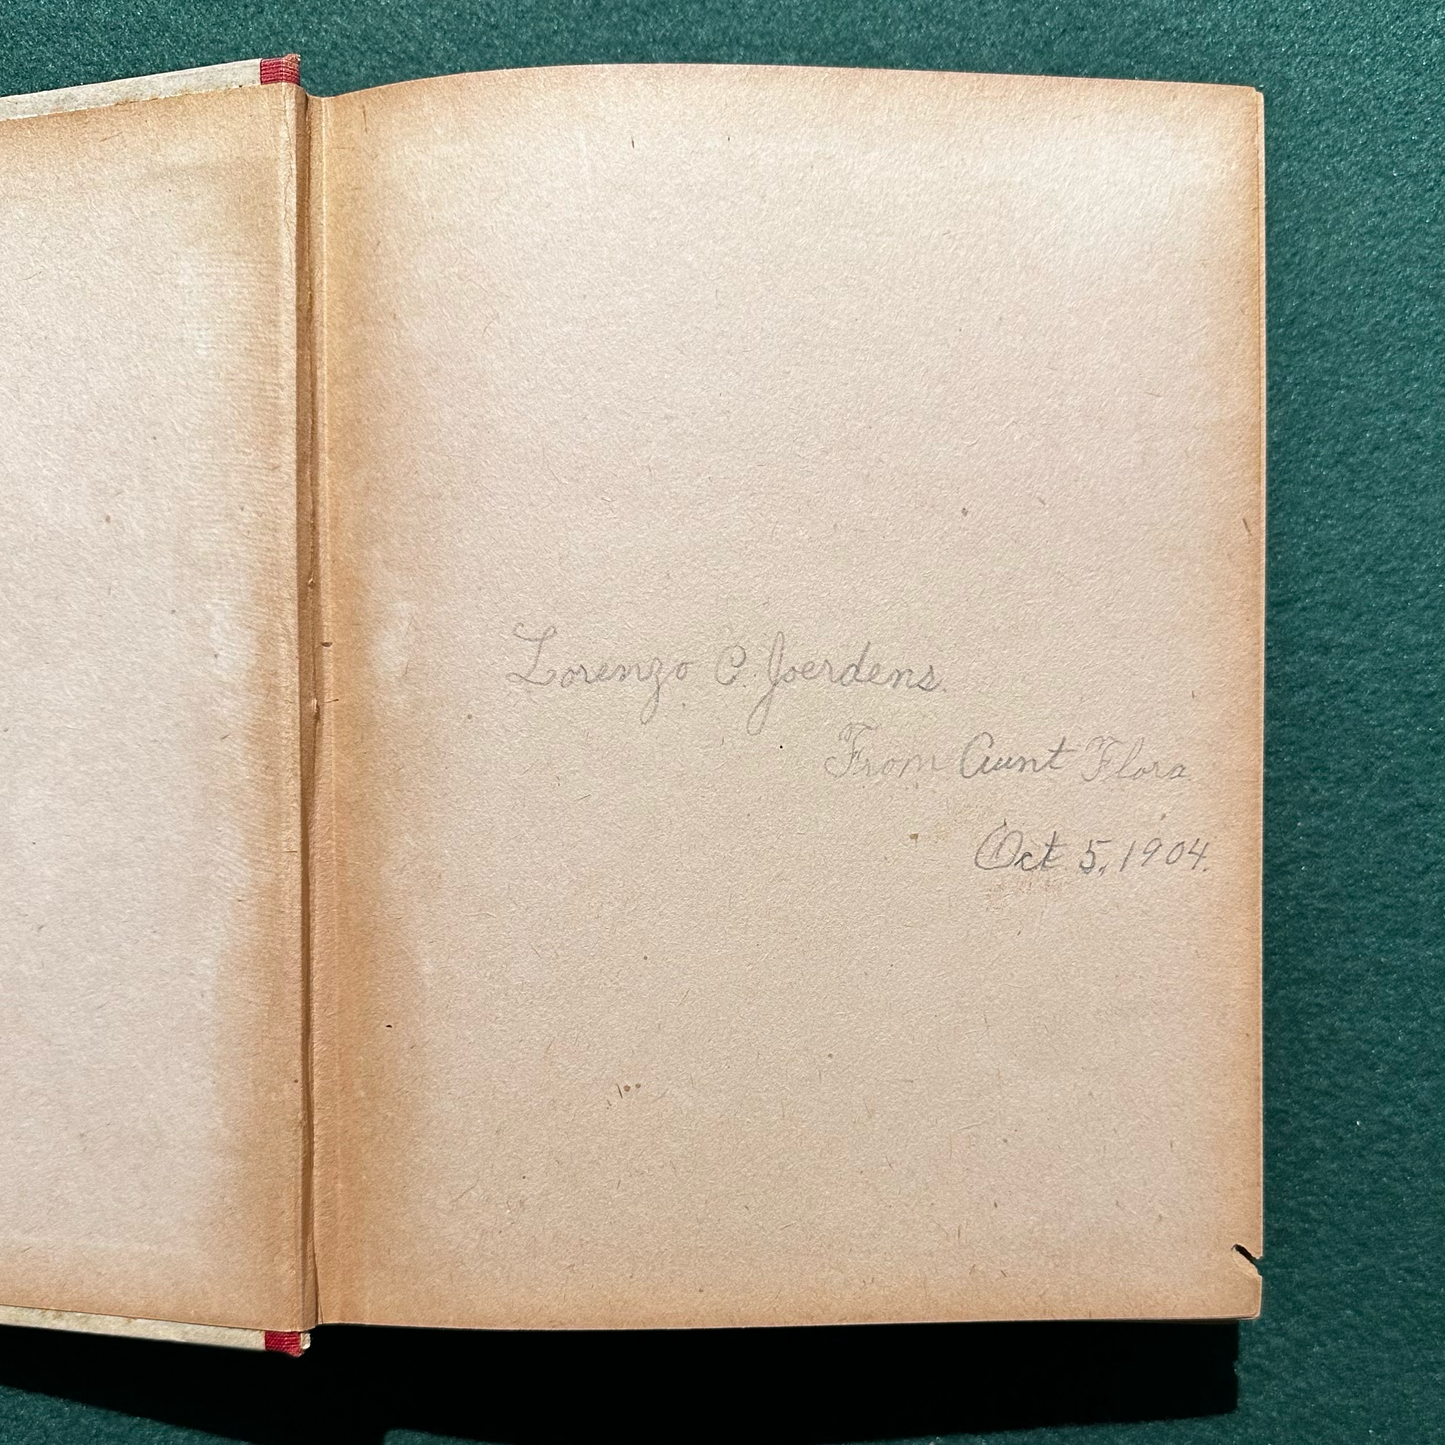 Lorenzo C. Joerdens.
From Aunt Flora
Oct 5, 1904.